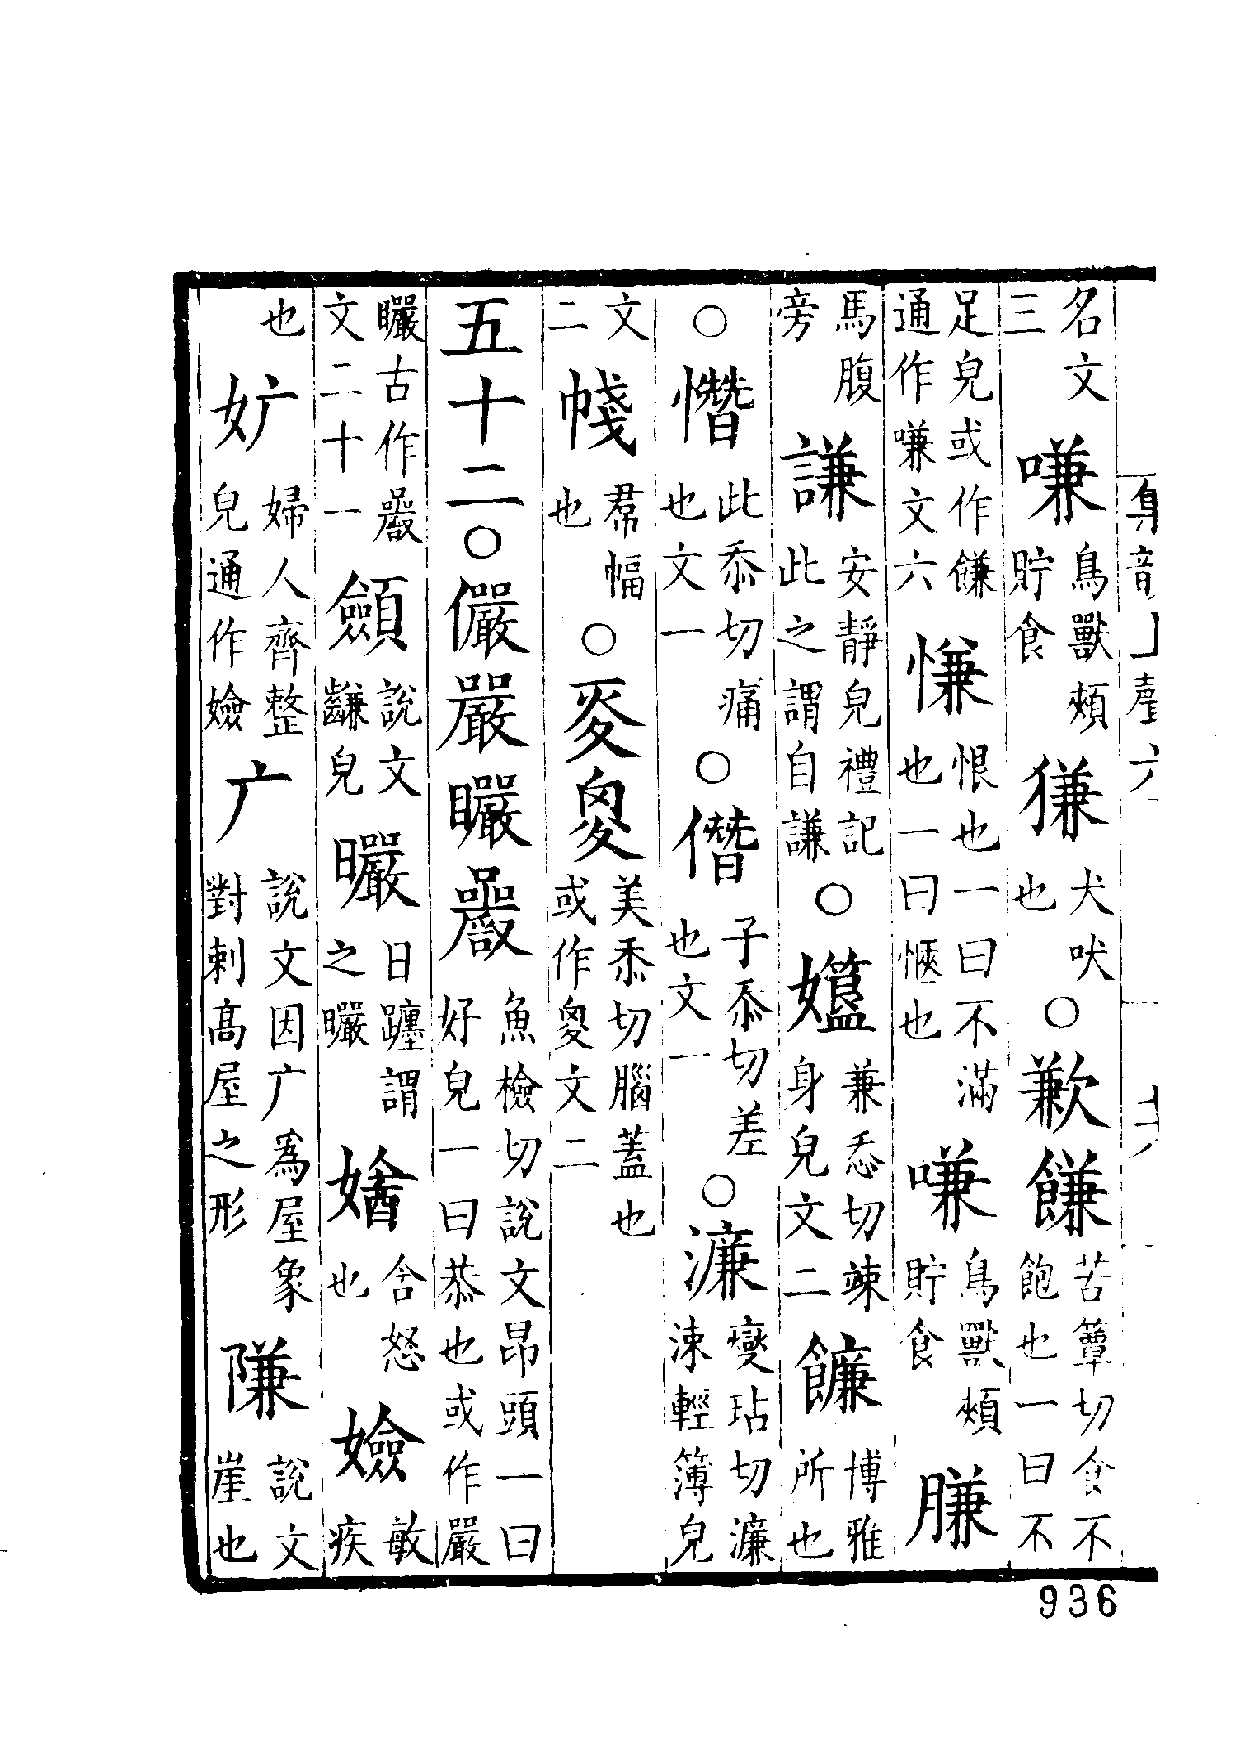 名文三嗛鳥獸頰貯食㺌犬吠也○歉䭑苦簟切食不飽也一曰不
足皃或作䭑通作嗛文六慊恨也一曰不滿也一曰愜也嗛鳥獸頰貯食膁
馬腹旁謙安靜皃禮記此之謂自謙○兼忝切竦身皃文二博雅所也
○憯此忝切痛也文一○僭子忝切差也文一○濂變玷切濂涑輕簿皃
文二帴帬幅也○㚇美忝切腦蓋也或作文二
五十二○儼嚴曮魚檢切說文昂頭一曰好皃一曰恭也或作嚴
曮古作文二十一顩說文𪙊皃曮日躔謂之曮㛍含怒也嬐敏疾
也㚻婦人齊整皃通作嬐广說文因广爲屋象對刺高屋之形隒說文崖也
集韻上聲六
936